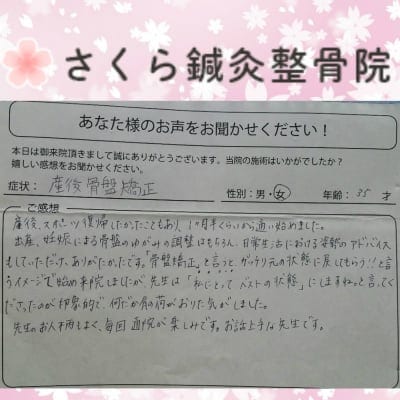 さくら鍼灸整骨院
あなた様のお声をお聞かせください！
本日は御来院頂きまして誠にありがとうございます。当院の施術はいかがでしたか？
嬉しい感想をお聞かせください。
症状： 産後骨盤矯正 性別：男・女 年齢： 35 才
ご感想
産後、スポーツ復帰したかったこともあり、1ヶ月半くらいから通い始めました。
出産、妊娠による骨盤のゆがみの調整はもちろん、日常生活における姿勢のアドバイス
もしていただけ、ありがたかったです。"骨盤矯正"と言うと、ガッチリ元の状態に戻してもらう!!と言
うイメージで始め来院しましたが、先生は「私にとってベストの状態」にしますねっと言ってく
ださったのが印象的で、何だか肩の荷がおりた気がしました。
先生のお人柄もよく、毎回通院が楽しみです。お話上手な先生です。